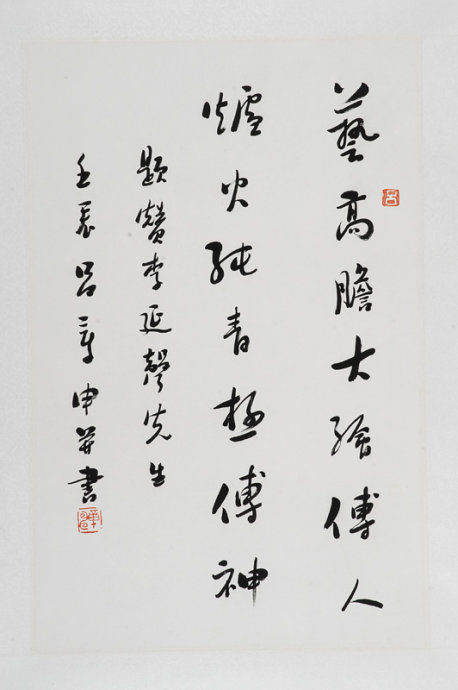 藝高膽大繪傳人
爐火純青極傳神
題贊李延聲先生
壬辰呂章申并書